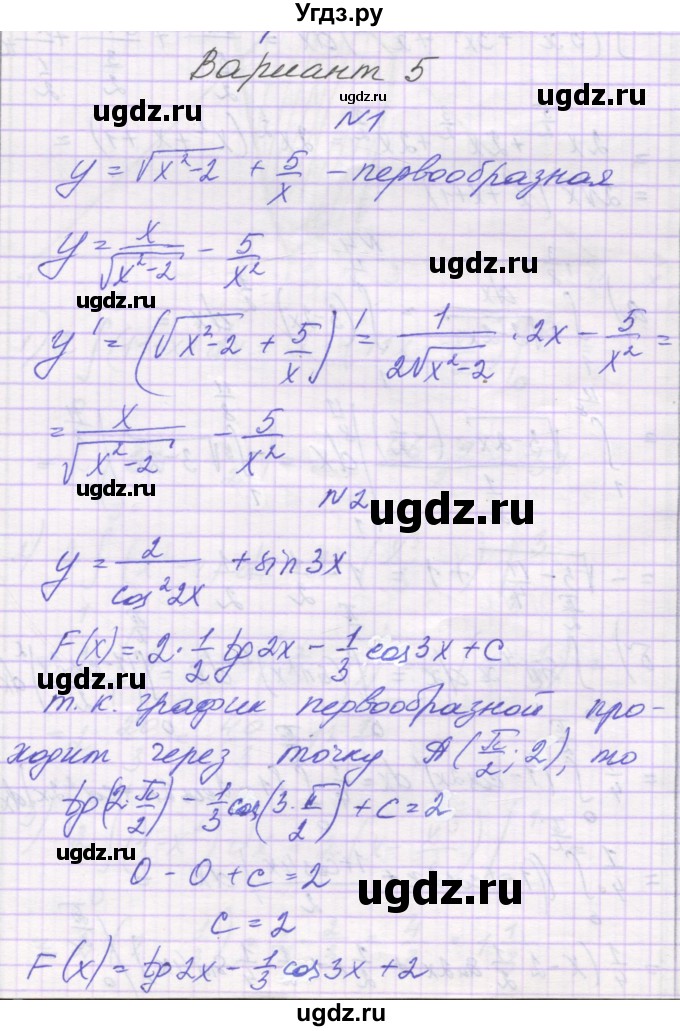 Угдз.ру
Вариант 5
ugdz.ru ugdz.ru
N1
y = √(x²-2) + 5/x - первообразная
y = x/√(x²-2) - 5/x²
ugdz.ru
ugdz.ru
y' = (√(x²-2) + 5/x)' = 1/(2√(x²-2)) · 2x - 5/x² =
= x/√(x²-2) - 5/x²
ugdz.ru
N2 ugdz.ru
y = 2/cos²2x + sin3x
F(x) = 2 · 1/2 tg2x - 1/3 cos3x + C
ugdz.ru
т.к. график первообразной про-
ходит через точку A(π/2; 2), то
tg(2·π/2) - 1/3 cos(3·π/2) + C = 2
ugdz.ru
0 - 0 + C = 2
ugdz.ru
C = 2
F(x) = tg2x - 1/3 cos3x + 2
ugdz.ru